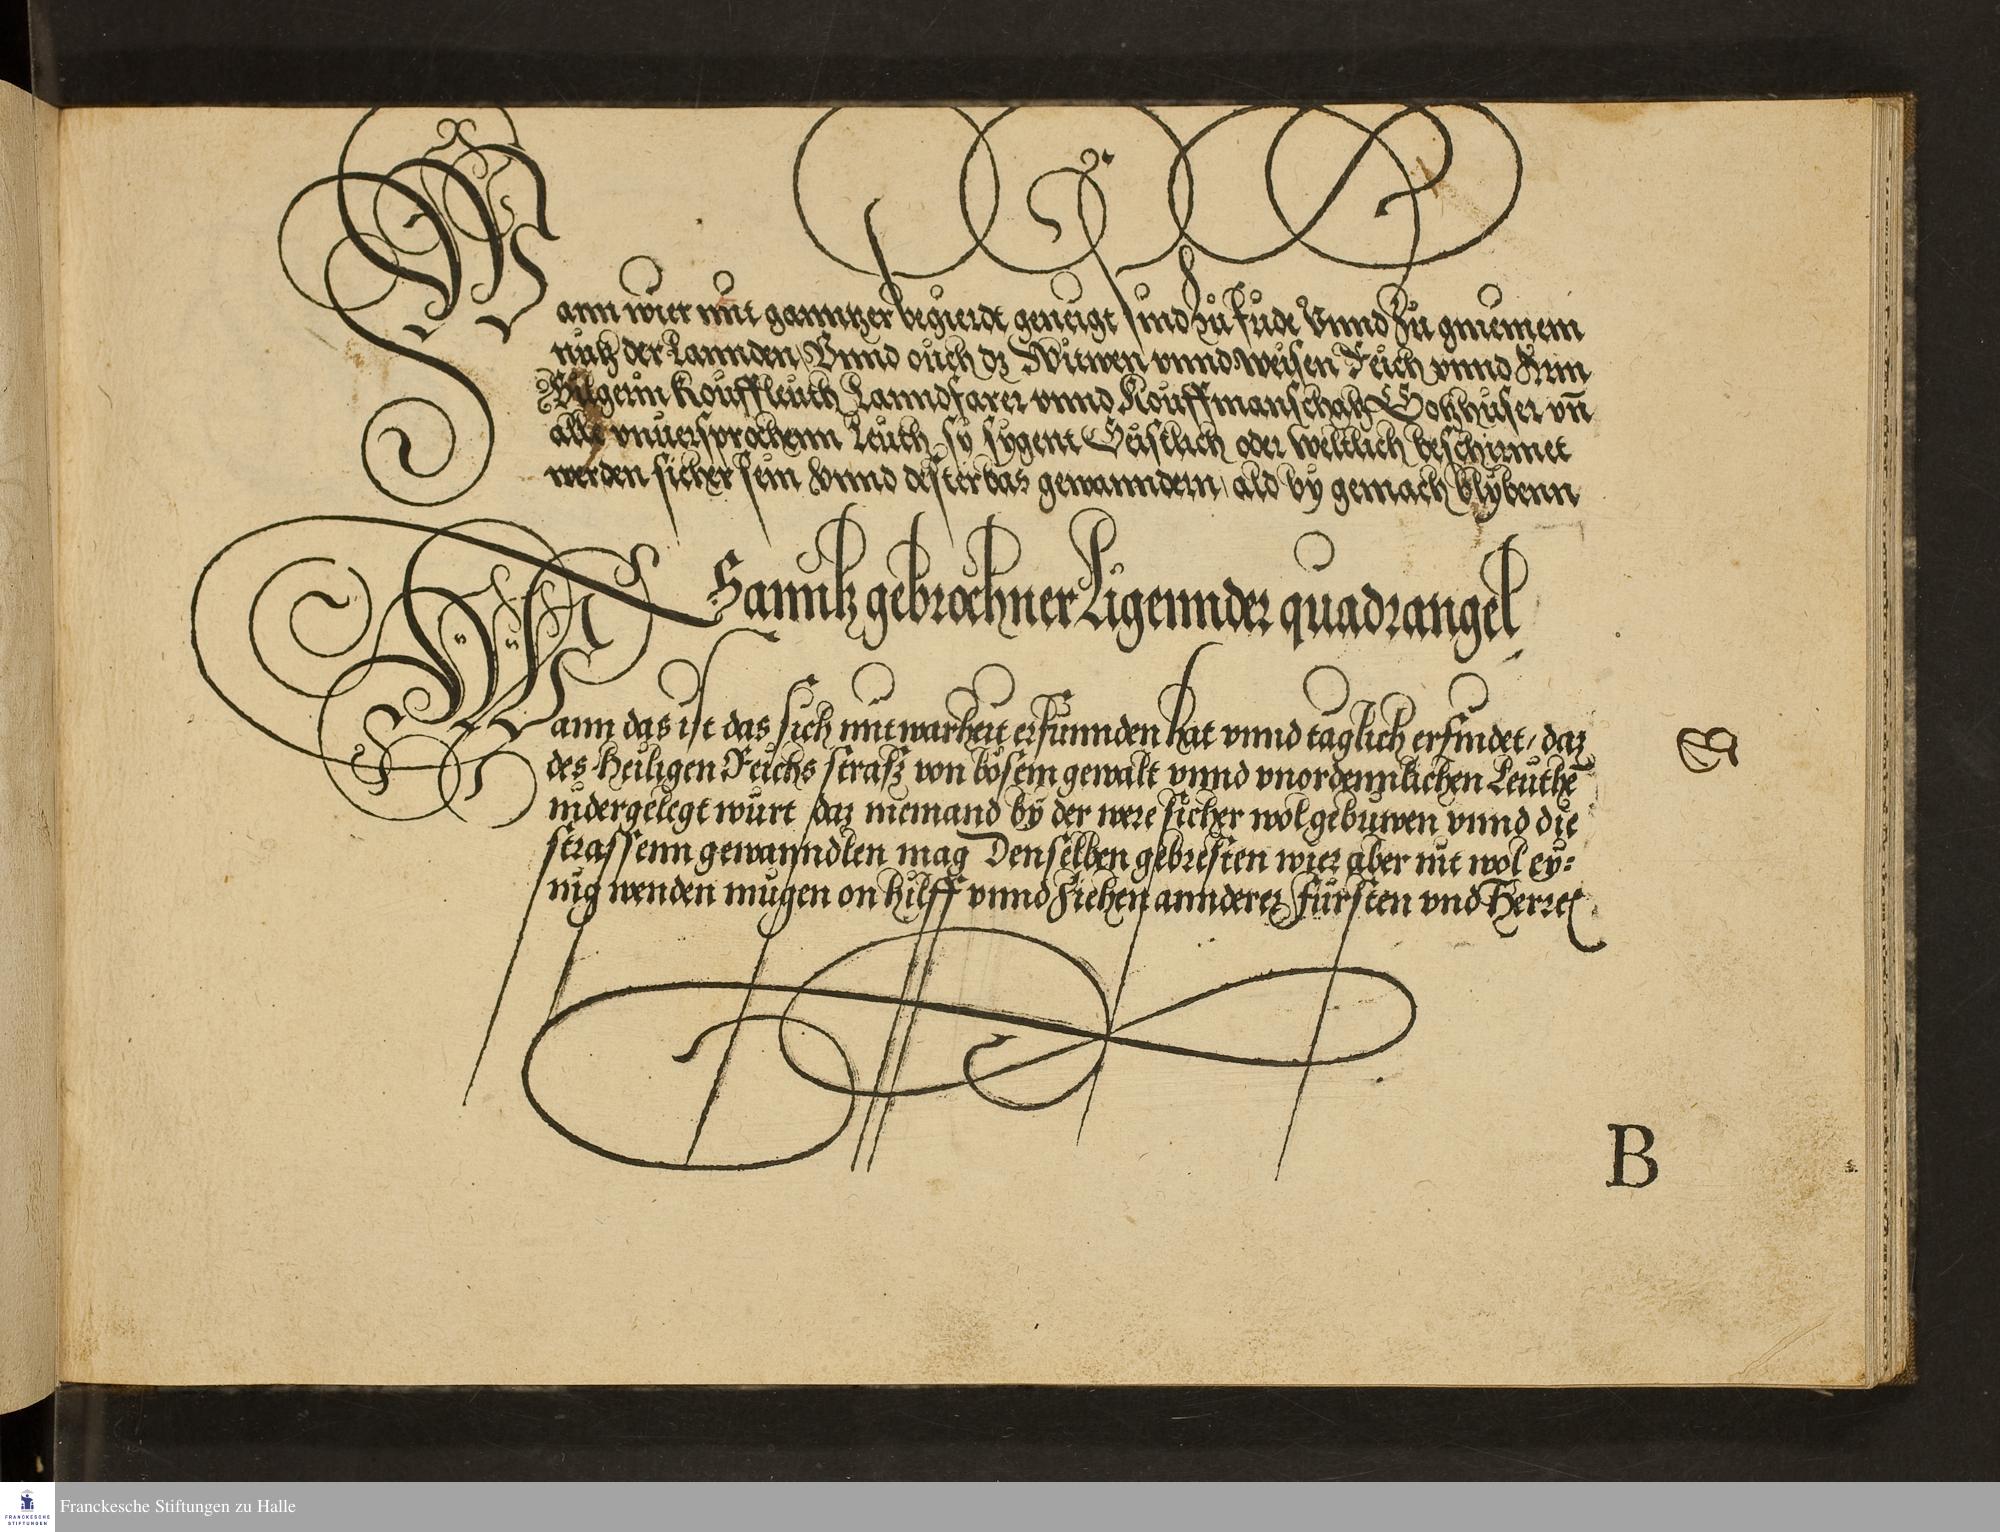 Wann wier mit ganntzer begierdt geneigt sind zů fride Vnnd zů gmeinem
nutz der Lannden, Vnnd ouch dz Witwen vnnd weisen Reich vnnd Arm
Bilgerin Kouffleuth Lanndfarer vnnd Kouffmanschatz Gotzhüser vn̄
alle vnuersprochenn Leuth sy sygent Geistlich oder weltlich beschirmet
werden sicher sein Vnnd dester bas gewanndern, ald by gemach blybenn
Ganntz gebrochner Ligennder quadrangel
Wann das ist das sich mit warheit erfunnden hat vnnd taglich erfindet, daz
des Heiligen Reichs strasz von bösem gewalt vnnd vnordennlichen Leuthē
nidergelegt würt, daz niemand by der were sicher wol gebuwen vnnd die
strassenn gewanndlen mag Denselben gebresten wier aber nit wol ey=
nig wenden mugen on hilff vnnd ziehen annderer fürsten vnd Herren
B
Franckesche Stiftungen zu Halle
FRANCKESCHE
STIFTUNGEN